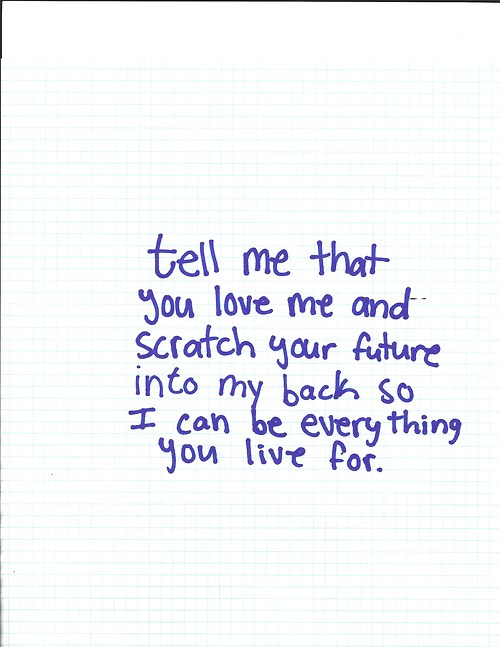 tell me that
you love me and
scratch your future
into my back so
I can be everything
you live for.